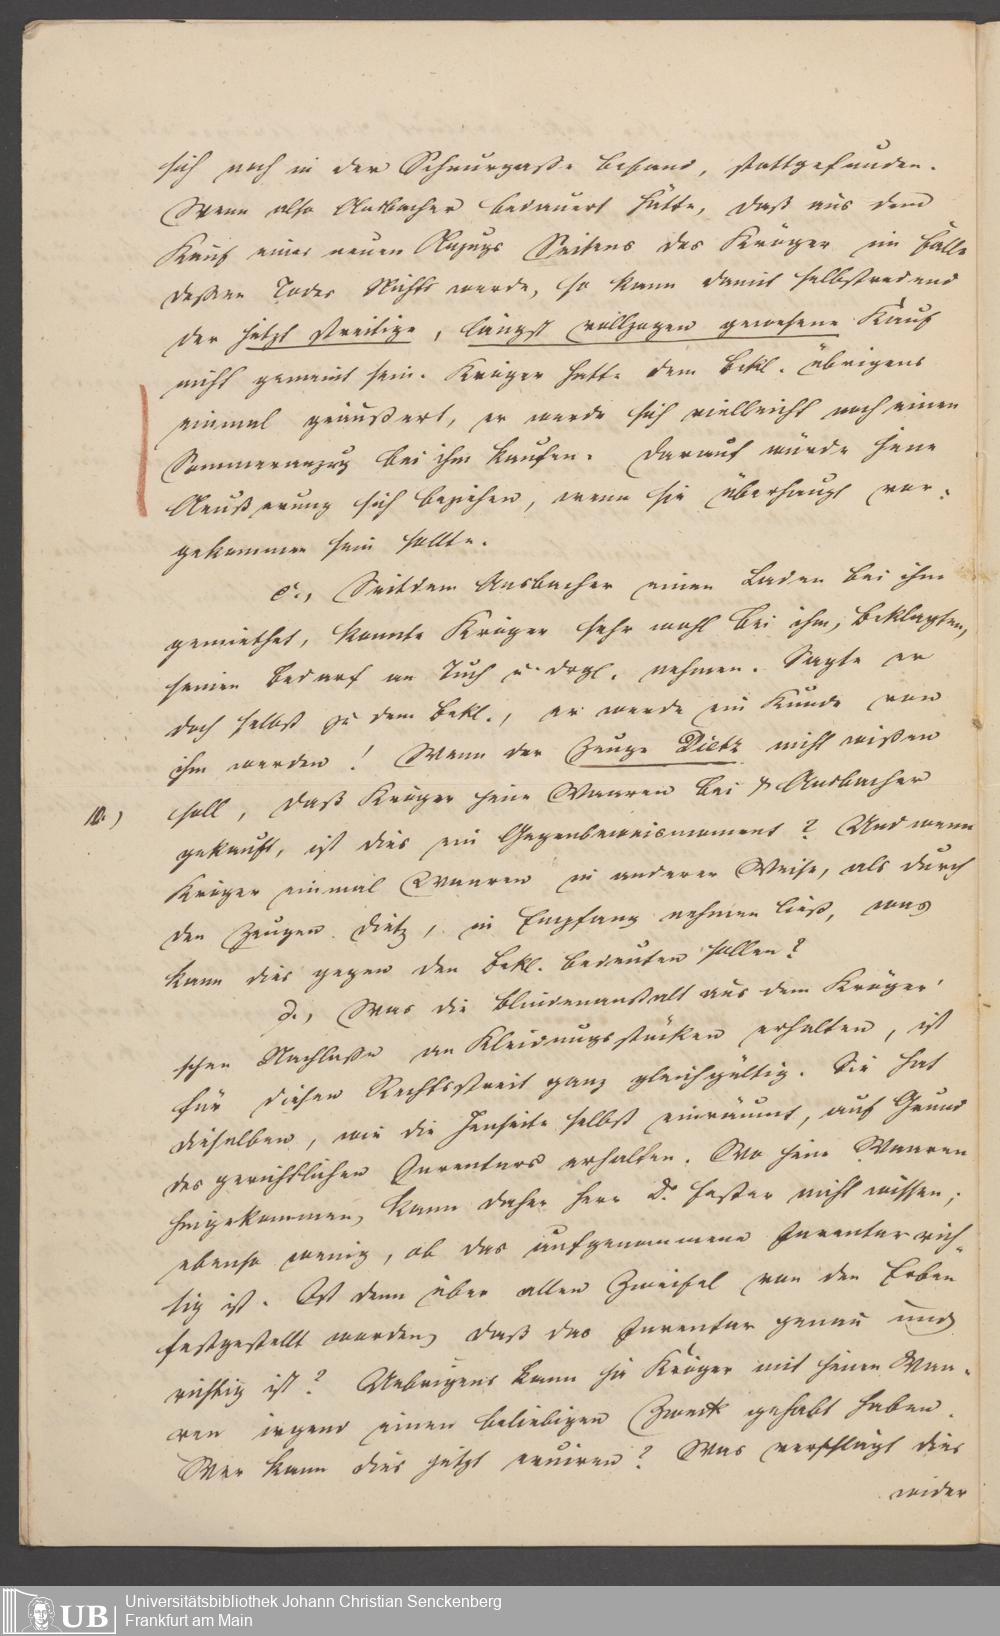 sich noch in der Schnurgasse befand, stattgefunden.
Wenn also Ansbacher bedauert hätte, daß aus dem
Kauf eines neuen Anzugs Seitens des Kröger im Falle
dessen Todes Nichts werde, so kann damit selbstredend
der jetzt streitige, längst vollzogen gewesene Kauf
nicht gemeint sein. Kröger hatte dem Bekl. übrigens
einmal geäußert, er werde sich vielleicht noch einen
Sommeranzug bei ihm kaufen. Darauf würde jene
Aeußerung sich beziehen, wenn sie überhaupt vor-
gekommen sein sollte.
c., Seitdem Ansbacher einen Laden bei ihm
gemiethet, konnte Kröger sehr wohl bei ihm, Beklagten,
seinen Bedarf an Tuch u. drgl. nehmen. Sagte er
doch selbst zu dem Bekl., er werde ein Kunde von
ihm werden! Wenn der Zeuge Dietz nicht wissen
10.) soll, daß Kröger seine Waaren bei Ansbacher
gekauft, ist dies ein Gegenbeweismoment? Und wenn
Kröger einmal Waaren in anderer Weise, als durch
den Zeugen Dietz, in Empfang nehmen ließ, was
kann dies gegen den Bekl. bedeuten sollen?
d., Was die Blindenanstalt aus dem Kröger'
schen Nachlasse an Kleidungsstücken erhalten, ist
für diesen Rechtsstreit ganz gleichgültig. Sie hat
dieselben, wie die Jenseite selbst einräumt, auf Grund
des gerichtlichen Inventars erhalten. Wo jene Waaren
hingekommen, kann daher Herr Dr. nicht wissen;
ebenso wenig, ob das aufgenommene Inventar rich-
tig ist. Ist denn über allen Zweifel von den Erben
festgestellt worden, daß das Inventar genau und
richtig ist? Uebrigens kann ja Kröger mit seinen Waa-
ren irgend einen beliebigen Zweck gehabt haben.
Wer kann dies jetzt eruiren? Was verschlägt dies
wider
Universitätsbibliothek Johann Christian Senckenberg
Frankfurt am Main
UB